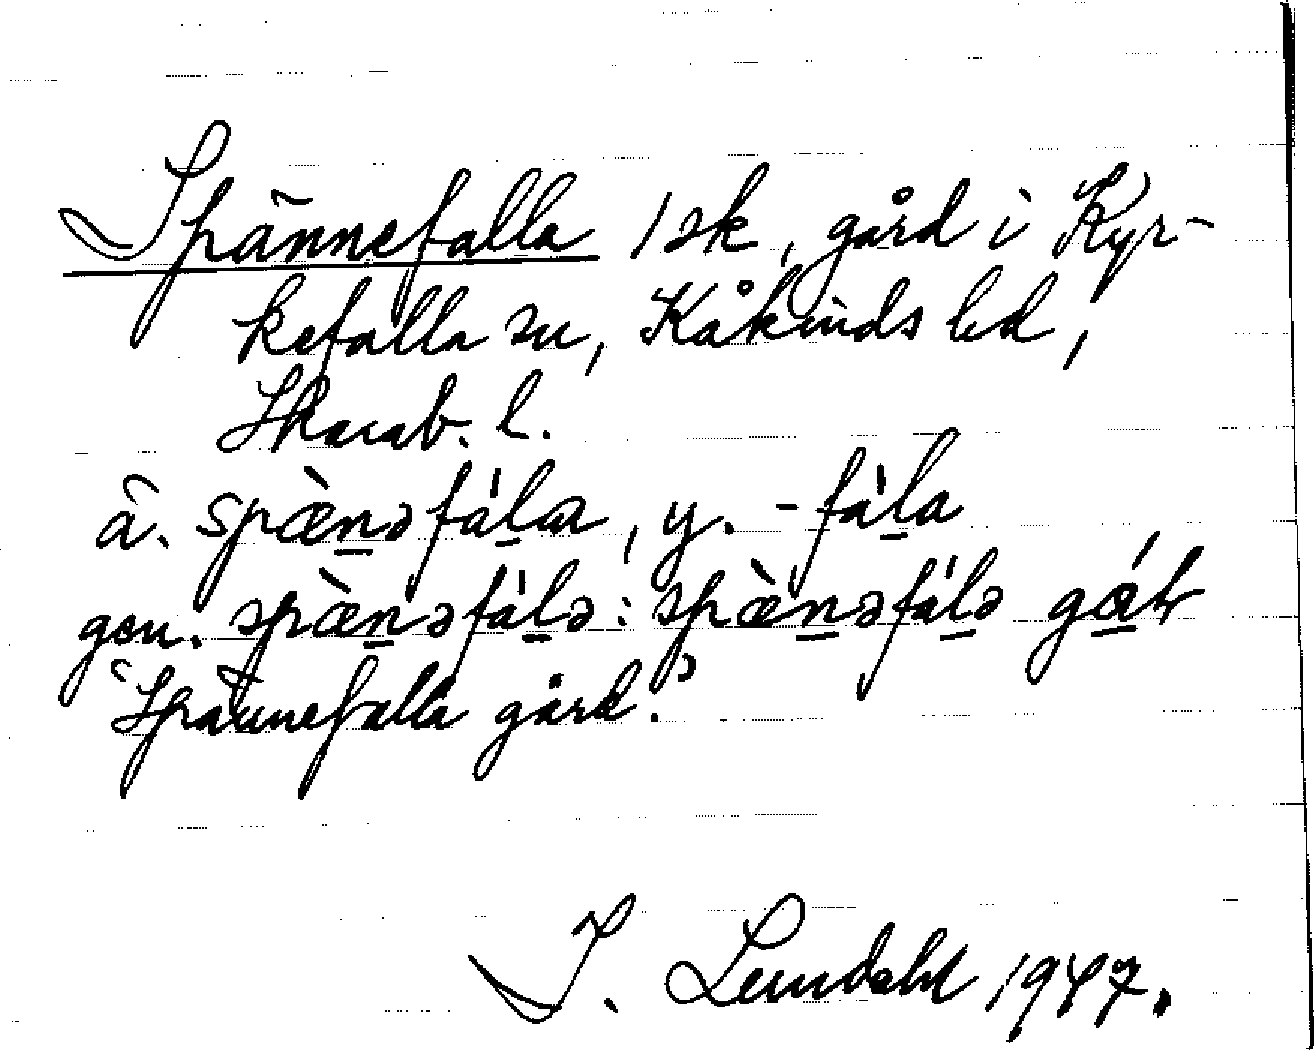 Spännefalla 1 sk, gård i Kyr-
kefalla sn, Kåkinds hd,
Skarab. l.
ä. spæ̀nəfálar, y. -fála
gen. spæ̀nəfálə: spæ̀nəfálə gáɽ
‘Spännefalla gård’.
I. Lundahl 1947.